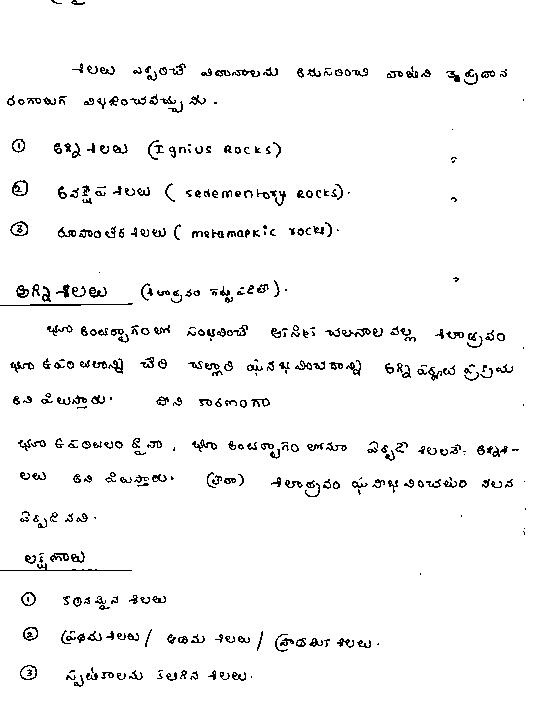 శిలలు ఏర్పడిన విధానాలను అనుసరించి వాటిని 3 ప్రధాన
రకాలుగా విభజించవచ్చును.
① అగ్ని శిలలు (Ignius Rocks)
② అవక్షేప శిలలు ( sedementory Rocks).
③ రూపాంతర శిలలు ( metamarkic rocks).
అగ్ని శిలలు (శిలాద్రవం గట్టిపడితే).
భూ అంతర్భాగంలో సంభవించే అనేక చలనాల వల్ల శిలాద్రవం
భూ ఉపరితలాన్ని చేరి చల్లారి ఘనీభవించడాన్ని అగ్ని పర్వత ప్రక్రియ
అని పిలుస్తారు. దీని కారణంగా
భూ ఉపరితలం పైనా , భూ అంతర్భాగం లోనూ ఏర్పడే శిలలనే అగ్నిశి-
లలు అని పిలుస్తారు. (లేదా) శిలాద్రవం ఘనీభవించుట వలన
ఏర్పడినవి.
లక్షణాలు
① కఠినమైన శిలలు
② ప్రథమ శిలలు / ఆదిమ శిలలు / ప్రాథమిక శిలలు.
③ స్ఫటికాలను కలిగిన శిలలు.